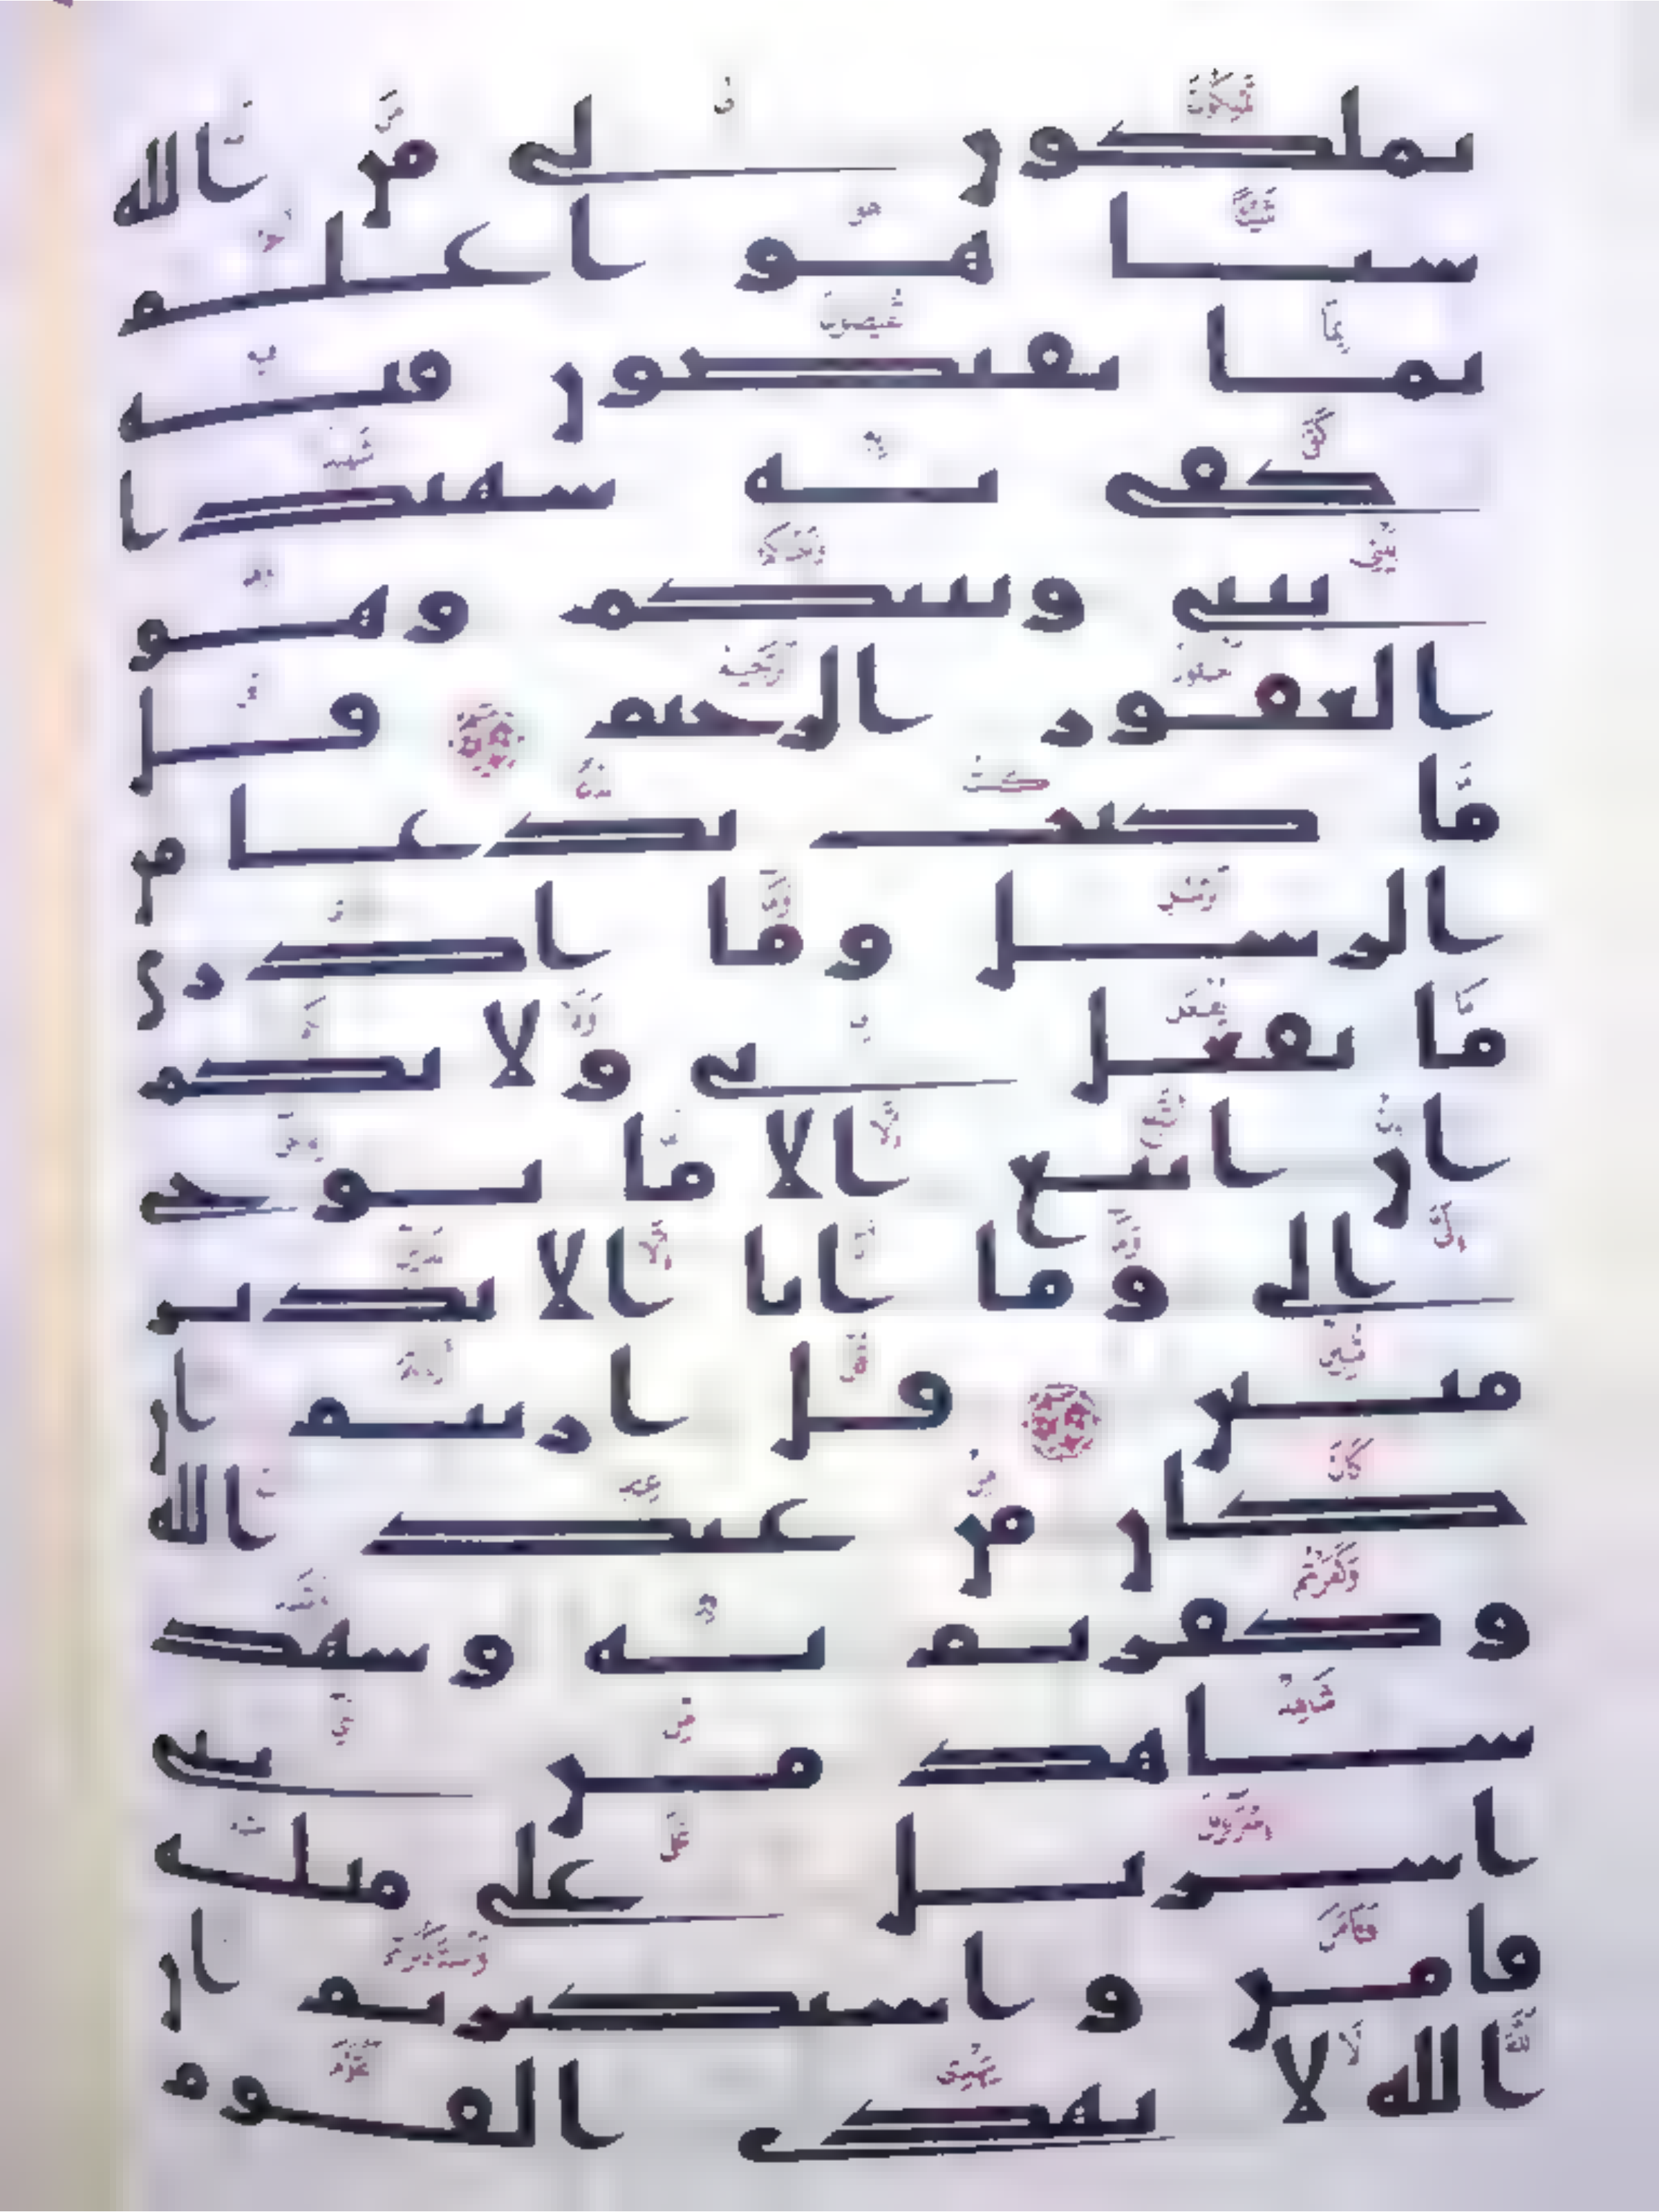 تملكون لى من الله
شيا هو اعلم
بما تفيضون فيه
كفى به شهيدا
بينى وبينكم وهو
الغفور الرحيم قل
ما كنت بدعا من
الرسل وما ادرى
ما يفعل بى ولا بكم
ان اتبع الا ما يوحى
الى وما انا الا نذير
مبين قل اريتم ان
كان من عند الله
وكفرتم به وشهد
شاهد من بنى
اسريل على مثله
فامن واستكبرتم ان
الله لا يهدى القوم